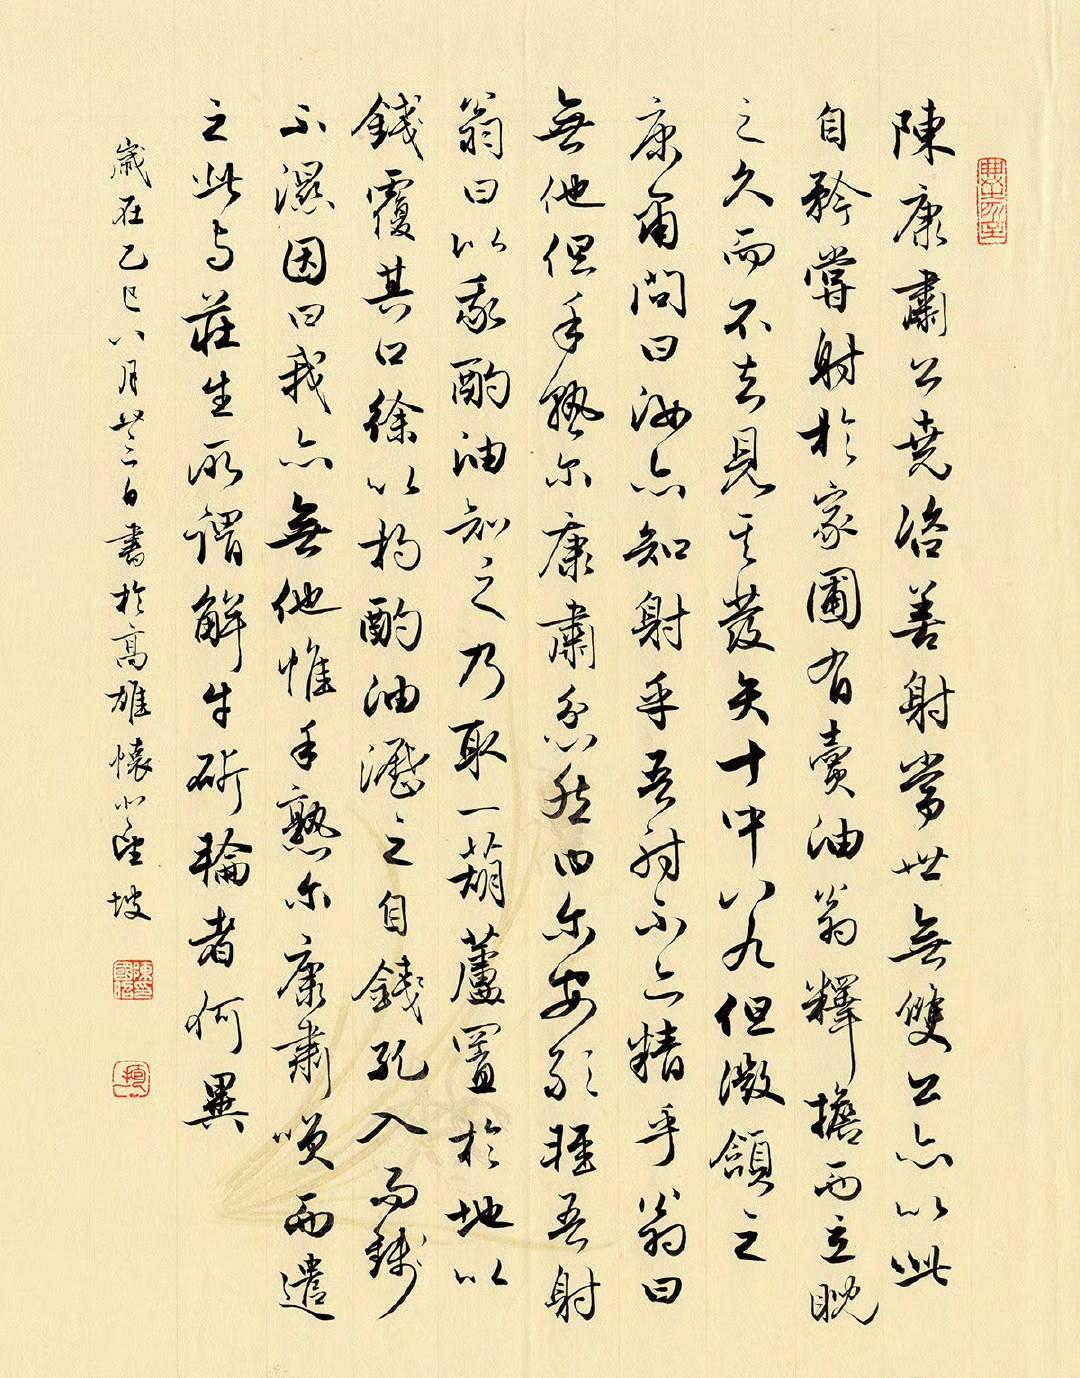 陳康肅公堯咨善射當世無雙公亦以此
自矜嘗射於家圃有賣油翁釋擔而立睨
之久而不去見其發矢十中八九但微頷之
康肅問曰汝亦知射乎吾射不亦精乎翁曰
無他但手熟尔康肅忿然曰尔安敢輕吾射
翁曰以我酌油知之乃取一葫蘆置於地以
錢覆其口徐以杓酌油瀝之自錢孔入而錢
不濕因曰我亦無他惟手熟尔康肅笑而遣
之此与莊生所謂解牛斫輪者何異
歲在乙巳八月廿三日書於高雄懷坡